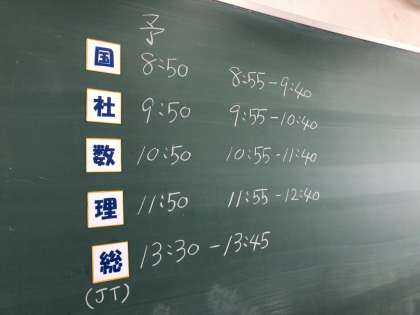 予
国 8:50 8:55-9:40
社 9:50 9:55-10:40
数 10:50 10:55-11:40
理 11:50 11:55-12:40
総 13:30-13:45
(JT)